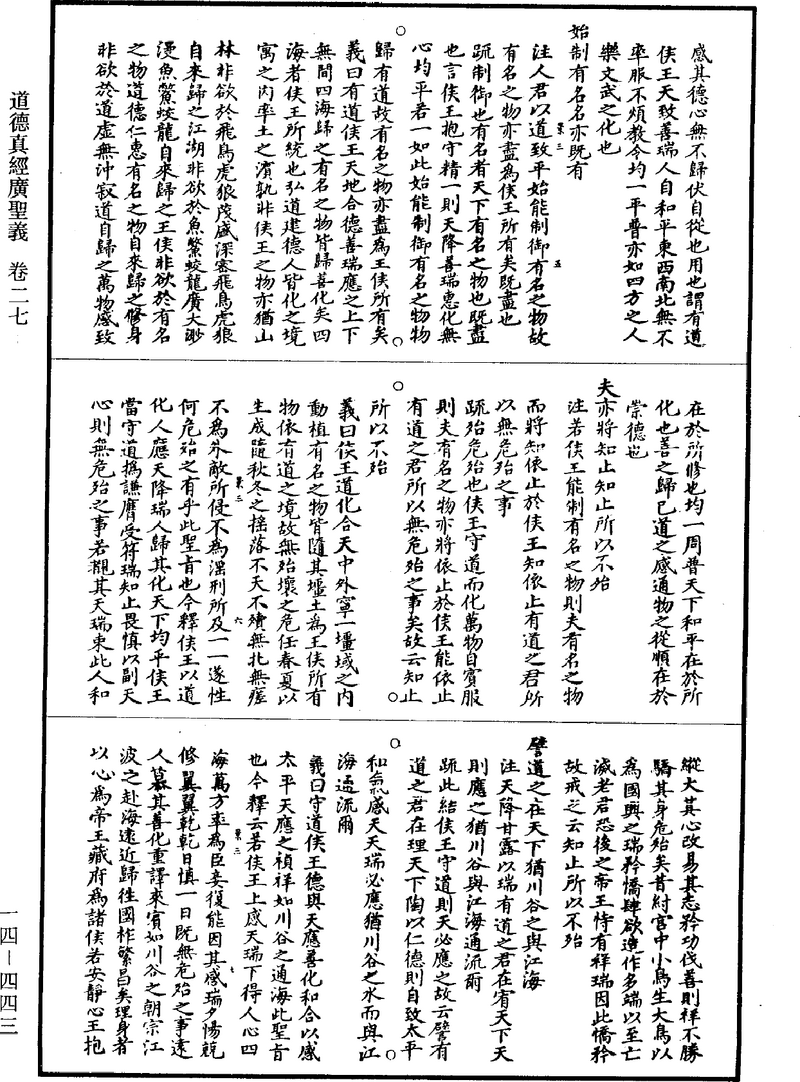 道德真經廣聖義　卷二七
感其德心無不歸伏自從也用也謂有道
侯王天致善瑞人自和平東西南北無不
率服不煩教令均一平普亦如四方之人
樂文武之化也
始制有名名亦既有
注人君以道致平始能制御有名之物故
有名之物亦盡為侯王所有矣既盡也
疏制御也有名者天下有名之物也既盡
也言侯王抱守精一則天降善瑞惠化無
心均平若一如此始能制御有名之物物
歸有道故有名之物亦盡為王侯所有矣
義曰有道侯王天地合德善瑞應之上下
無間四海歸之有名之物皆歸善化矣四
海者侯王所統也弘道建德人皆化之境
寓之內率土之濱孰非侯王之物亦猶山
林非欲於飛鳥虎狼茂盛深密飛鳥虎狼
自來歸之江湖非欲於魚鱉蛟龍廣大渺
漫魚鱉蛟龍自來歸之王侯非欲於有名
之物道德仁惠有名之物自來歸之修身
非欲於道虛無沖寂道自歸之萬物感致
在於所修也均一周普天下和平在於所
化也善之歸已道之感通物之從順在於
崇德也
夫亦將知止知止所以不殆
注若侯王能制有名之物則夫有名之物
而將知依止於侯王知依止有道之君所
以無危殆之事
疏殆危殆也侯王守道而化萬物自賓服
則夫有名之物亦將依止於侯王能依止
有道之君所以無危殆之事矣故云知止
所以不殆
義曰侯王道化合天中外寧一壃域之內
動植有名之物皆隨其壃土為王侯所有
物依有道之境故無殆壞之危任春夏以
生成隨秋冬之搖落不夭不殰無札無瘥
不為外敵所侵不為淫刑所及一一遂性
何危殆之有乎此聖旨也今釋侯王以道
化人應天降瑞人歸其化天下均平侯王
當守道撝謙膺受符瑞知止畏慎以副天
心則無危殆之事若覩其天瑞束此人和
縱大其心改易其志矜功伐善則祥不勝
驕其身危殆矣昔紂宮中小鳥生大鳥以
為國興之瑞矜憍肆欲造作多端以至亡
滅老君恐後之帝王恃有祥瑞因此憍矜
故戒之云知止所以不殆
譬道之在天下猶川谷之與江海
注天降甘露以瑞有道之君在宥天下天
則應之猶川谷與江海通流爾
疏此結侯王守道則天必應之故云譬有
道之君在理天下陶以仁德則自致太平
和氣感天天瑞必應猶川谷之水而與江
海通流爾
義曰守道侯王德與天應善化和合以感
太平天應之禎祥如川谷之通海此聖旨
也今釋云若侯王上感天瑞下得人心四
海萬方率為臣妾復能因其感瑞夕惕兢
修翼翼乾乾日慎一日既無危殆之事遠
人慕其善化重譯來賓如川谷之朝宗江
波之赴海遠近歸往國祚繁昌矣理身者
以心為帝王藏府為諸侯若安靜心王抱
一四－四四三